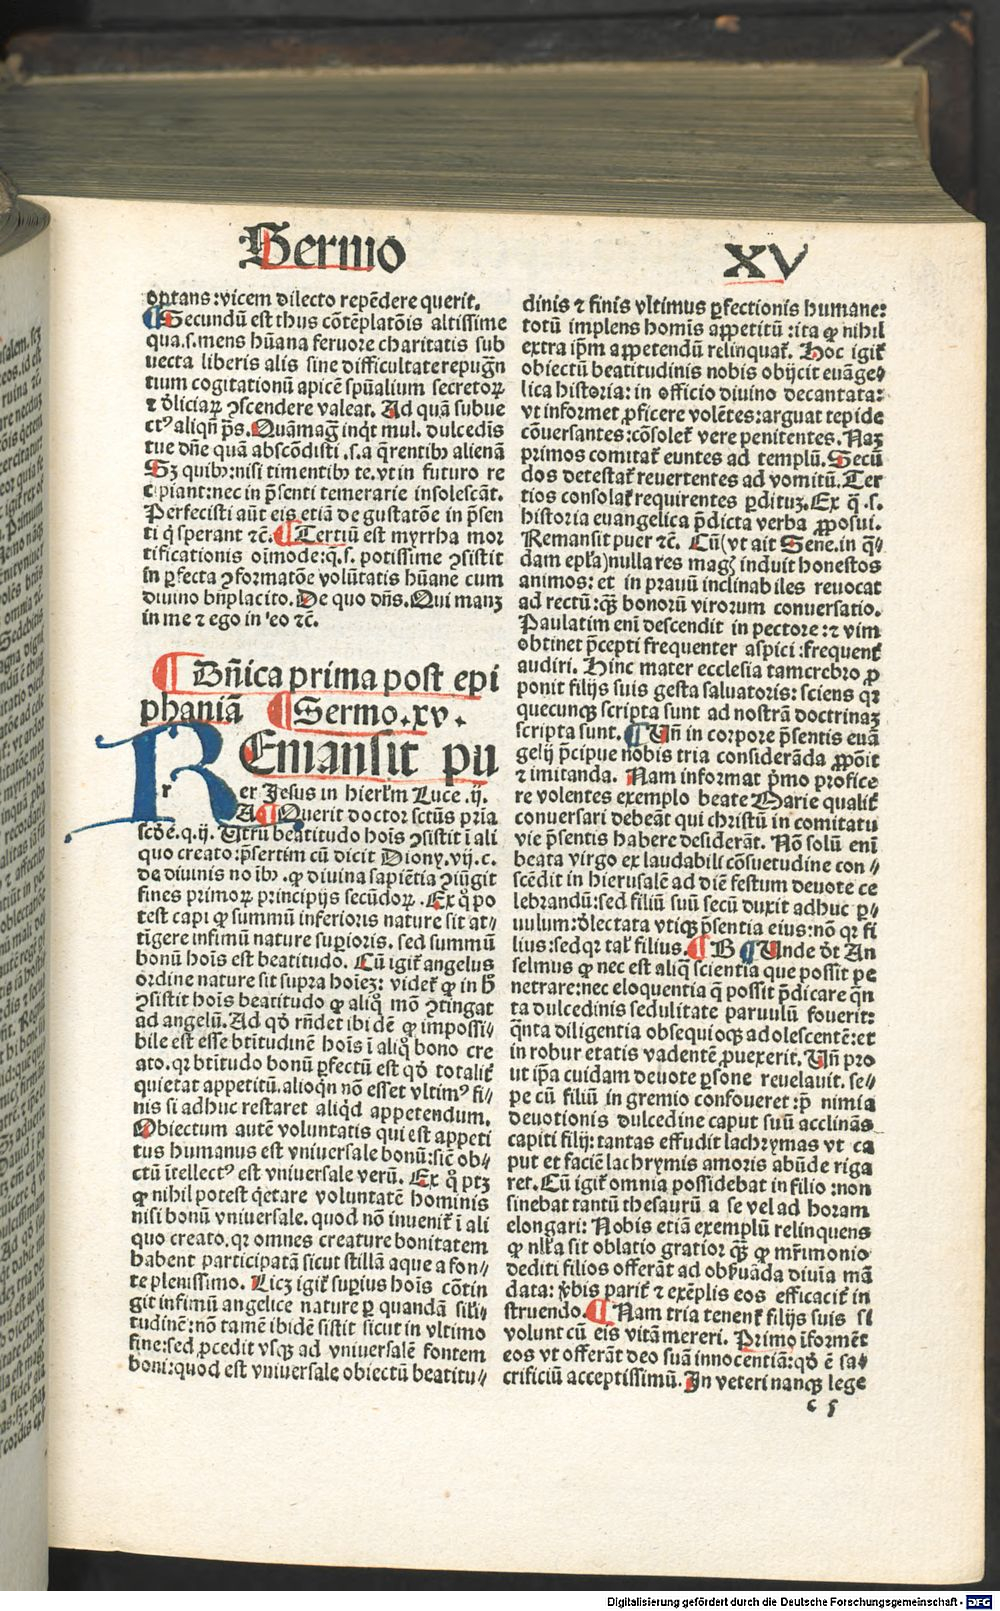 Sermo XV
optans: vicem dilecto repēdere querit.
¶ Secundū est thus cōtēplatōis altissime
qua .s. mens hūana feruore charitatis sub
uecta liberis alis sine difficultate repugn̄
tium cogitationū apicē spūalium secretoꝝ
⁊ dʼliciaꝝ ꝯscendere valeat. Ad quā subue
ctꝰ aliqn̄ ps̄. Quāmaḡ inqͥt mul. dulcedīs
tue dn̄e quā abscōdisti .s. a q̄rentibꝰ alienā
Sꝫ quibꝰ: nisi timentibꝰ te. vt in futuro re
cipiant: nec in p̄senti temerarie insolescāt.
Perfecisti aūt eis etiā de gustatōe in p̄sen
ti qͥ sperant ⁊c̄. ¶ Tertiū est myrrha mor
tificationis oīmode: q̄ .s. potissime ꝯsistit
in ꝑfecta ꝯformatōe volūtatis hūane cum
diuino bn̄placito. De quo dn̄s. Qui manꝫ
in me ⁊ ego in eo ⁊c̄.
¶ Dn̄ica prima post epi
phaniā ¶ Sermo .xv.
REmansit pu
r er Jesus in hierl̄m Luce .ij.
A ¶ Querit doctor sctūs prīa
scd̄e .q. ij. Utrū beatitudo hoīs ꝯsistit ī ali
quo creato: p̄sertim cū dicit Diony. vij. c.
de diuinis noībꝰ. ꝙ diuina sapiētia ꝯiūgit
fines primoꝝ principijs secūdoꝝ. Ex qͦ po
test capi ꝙ summū inferioris nature sit at⸗
tīgere infimū nature supioris. sed summū
bonū hoīs est beatitudo. Cū igit̄ angelus
ordine nature sit supra hoīeꝫ: videt̄ ꝙ in hͦ
ꝯsistit hoīs beatitudo ꝙ aliqͦ mō ꝯtingat
ad angelū. Ad qd̄ rn̄det ibidē ꝙ impossi⸗
bile est esse btītudinē hoīs ī aliqͦ bono cre
ato. qꝛ btītudo bonū ꝑfectū est qd̄ totalit̄
quietat appetitū. alioqn̄ nō esset vltimꝰ fi⸗
nis si adhuc restaret aliqͥd appetendum.
Obiectum autē voluntatis qui est appeti
tus humanus est vniuersale bonū: sic̄ ob⸗
ctū ītellectꝰ est vniuersale verū. Ex qͦ ptꝫ
ꝙ nihil potest qͥetare voluntatē hominis
nisi bonū vniuersale. quod nō inuenit̄ ī ali
quo creato. qꝛ omnes creature bonitatem
habent participatā sicut stillā aque a fon⸗
te plenissimo. Licꝫ igit̄ supius hoīs cōtin
git infimū angelice nature ꝑ quandā sili⸗
tudinē: nō tamē ibidē sistit sicut in vltimo
fine: sed ꝓcedit vsqꝫ ad vniuersalē fontem
boni: quod est vniuersale obiectū beatitu⸗
dinis ⁊ finis vltimus ꝑfectionis humane:
totū implens homīs appetitū: ita ꝙ nihil
extra ip̄m appetendū relinquat̄. Hoc igit̄
obiectū beatitudinis nobis obijcit euāge⸗
lica historia: in officio diuino decantata:
vt informet ꝓficere volētes: arguat tepide
cōuersantes: cōsolet̄ vere penitentes. Naꝫ
primos comitat̄ euntes ad templū. Secū
dos detestat̄ reuertentes ad vomitū. Ter
tios consolat̄ requirentes ꝑdituꝫ. Ex q̄ .s.
historia euangelica p̄dicta verba ꝓposui.
Remansit puer ⁊c̄. Cū (vt ait Sene. in q̄⸗
dam epl̄a) nulla res magꝭ induit honestos
animos: et in prauū inclinabiles reuocat
ad rectū: qꝫ bonorū virorum conuersatio.
Paulatim enī descendit in pectore: ⁊ vim
obtinet p̄cepti frequenter aspici: frequent̄
audiri. Hinc mater ecclesia tam crebro ꝓ
ponit filijs suis gesta saluatoris: sciens qꝛ
quecunqꝫ scripta sunt ad nostrā doctrinaꝫ
scripta sunt. ¶ Un̄ in corpore p̄sentis euā
gelij p̄cipue nobis tria considerāda ꝓpōit
⁊ imitanda. Nam informat pͥmo profice
re volentes exemplo beate Marie qualit̄
conuersari debeāt qui christū in comitatu
vie p̄sentis habere desiderāt. Nō solū enī
beata virgo ex laudabili cōsuetudine con⸗
scēdit in hierusalē ad diē festum deuote ce
lebrandū: sed filiū suū secū duxit adhuc ꝑ⸗
uulum: dʼlectata vtiqꝫ p̄sentia eius: nō qꝛ fi
lius: sed qꝛ tal̄ filius. ¶ B ¶ Unde dʼt An
selmus ꝙ nec est aliq̄ scientia que possit pe
netrare: nec eloquentia q̄ possit p̄dicare qn̄
ta dulcedinis sedulitate paruulū fouerit:
qn̄ta diligentia obsequioqꝫ adolescentē: et
in robur etatis vadentē ꝓuexerit. Un̄ pro
ut ip̄a cuidam deuote ꝑsone reuelauit. se⸗
pe cū filiū in gremio confoueret: p̄ nimia
deuotionis dulcedine caput suū acclinas
capiti filij: tantas effudit lachrymas vt ca
put et faciē lachrymis amoris abūde riga
ret. Cū igit̄ omnia possidebat in filio: non
sinebat tantū thesaurū a se vel ad horam
elongari: Nobis etiā exemplū relinquens
ꝙ nl̄la sit oblatio gratior qꝫ̄ ꝙ mr̄imonio
dediti filios offerāt ad obẜuāda diuīa mā
data: v̄bis parit̄ ⁊ exēplis eos efficacit̄ in
struendo. ¶ Nam tria tenent̄ filijs suis si
volunt cū eis vitā mereri. Primo īformēt
eos vt offerāt deo suā innocentiā: qd̄ ē sa⸗
crificiū acceptissimū. In veteri nanqꝫ lege
c 5
Digitalisierung gefördert durch die Deutsche Forschungsgemeinschaft - DFG